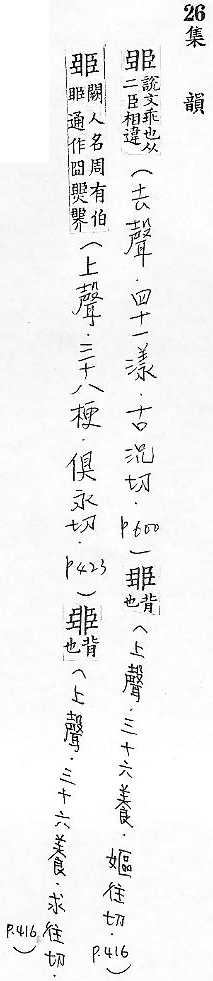 26 集韻
臦 說文乖也从二臣相違（去聲．四十一漾．古況切．p600）臦 背也（上聲．三十六養．嫗往切．p.416）
臦 闕人名周有伯臦通作囧（上聲．三十八梗．俱永切．p423）臦 背也（上聲．三十六養．求往切．p.416）